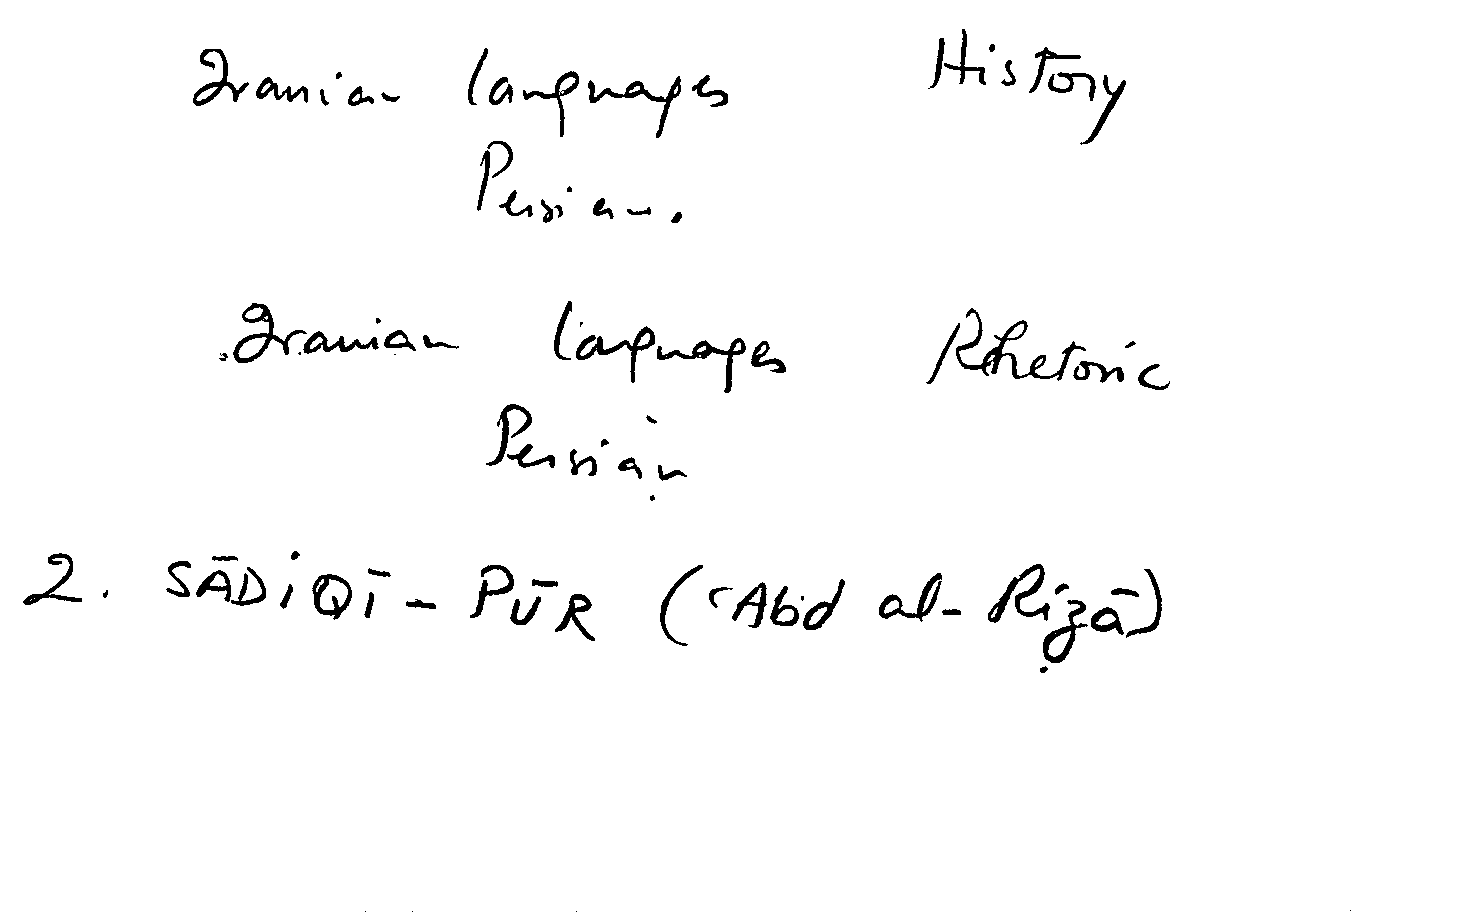 Iranian languages History
Persian.
Iranian languages Rhetoric
Persian
2. SĀDiQĪ - PŪR (ʿAbd al-Riẓā)